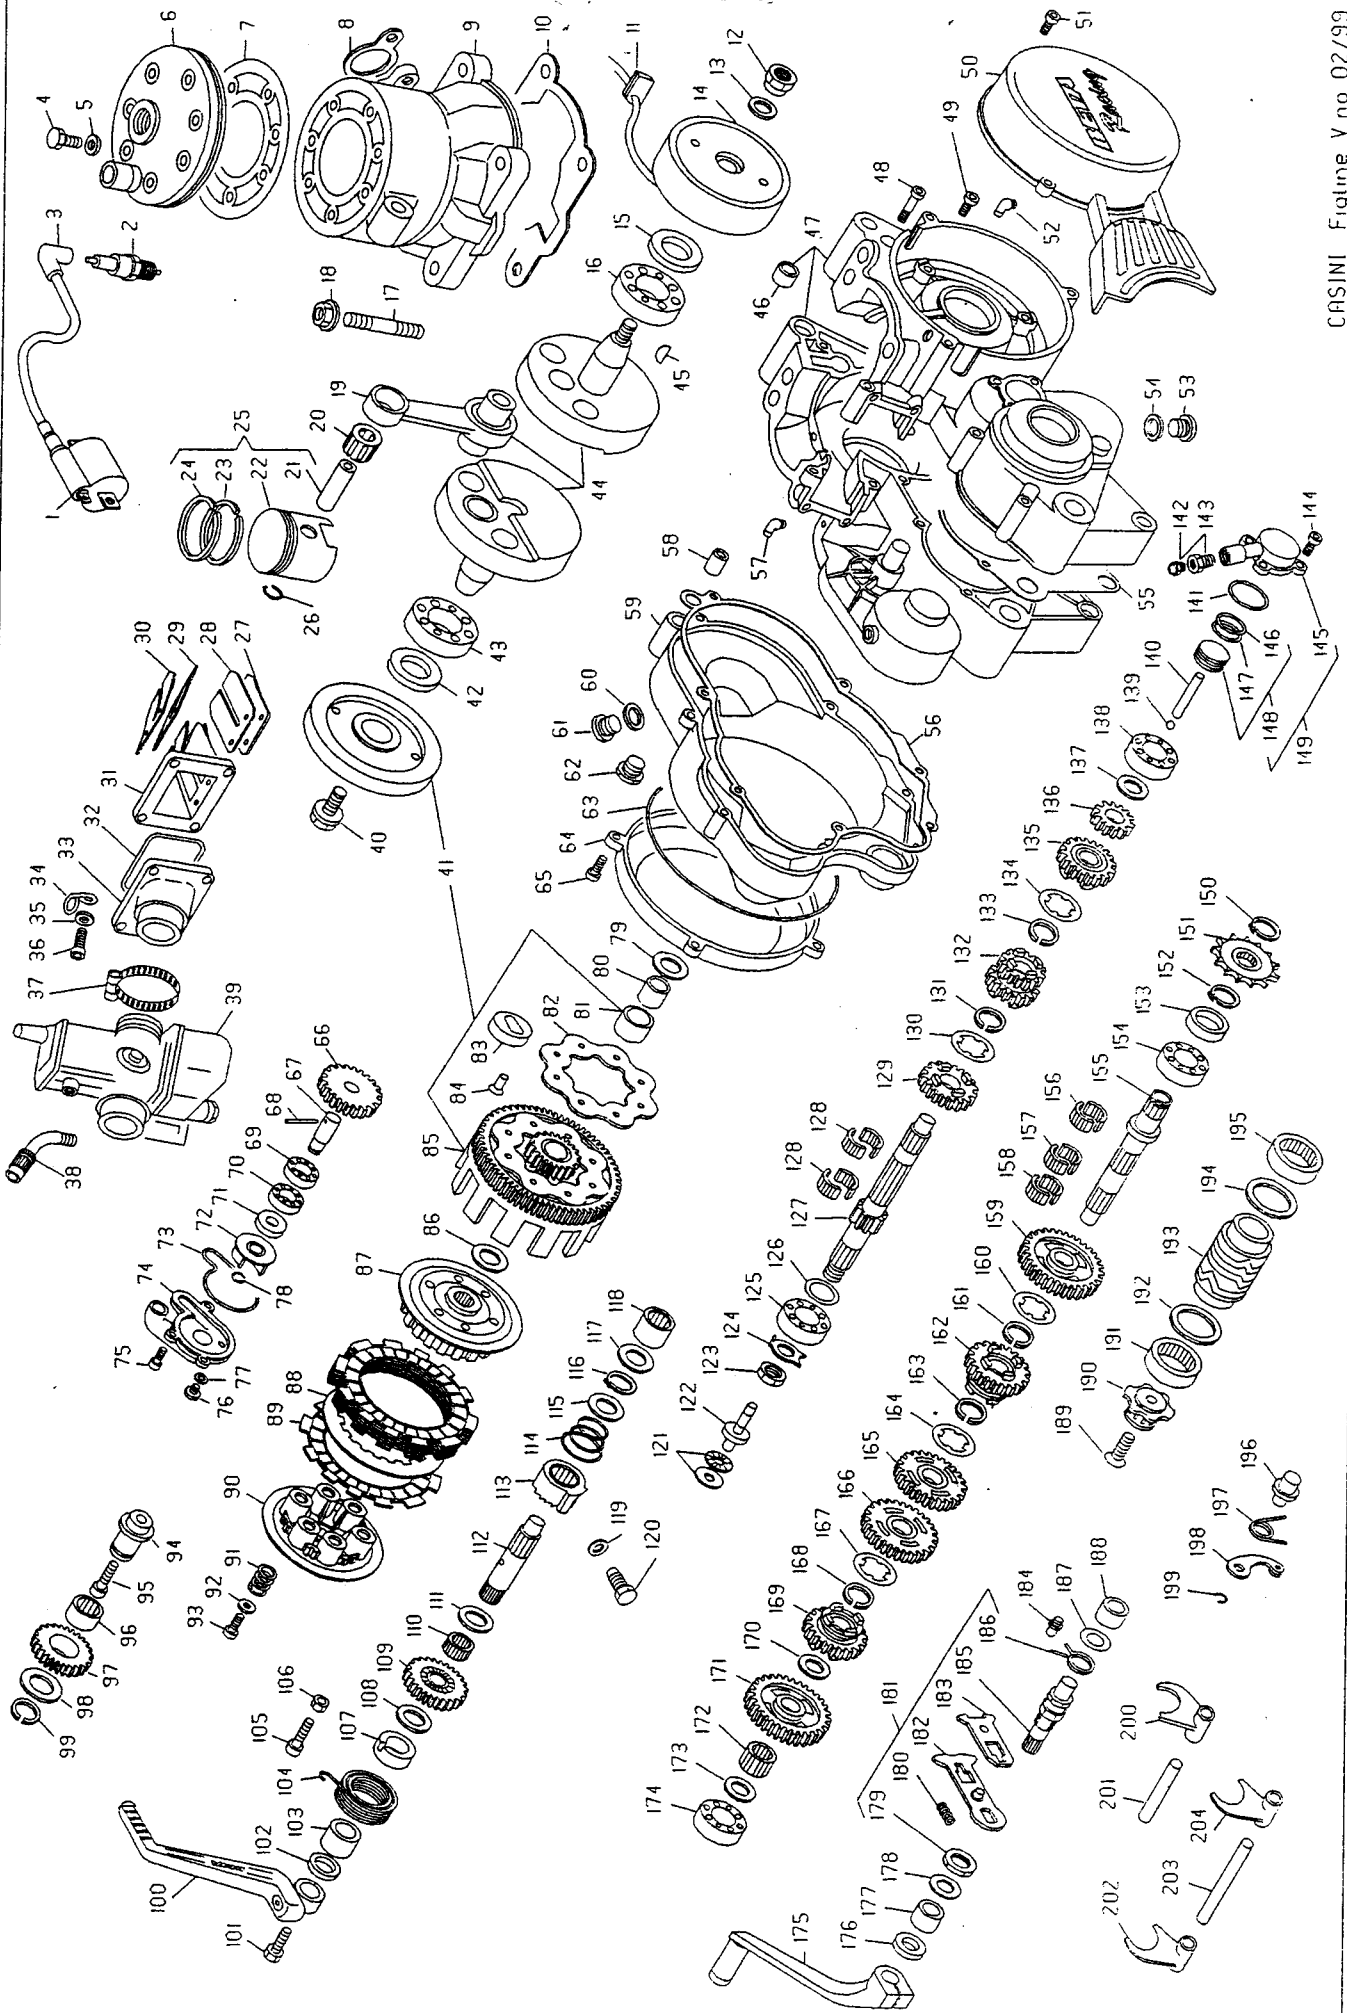 1
2
3
4
5
6
7
8
9
10
11
12
13
14
15
16
17
18
19
20
21
22
23
24
25
26
27
28
29
30
31
32
33
34
35
36
37
38
39
40
41
42
43
44
45
46
47
48
49
50
51
52
53
54
55
56
57
58
59
60
61
62
63
64
65
66
67
68
69
70
71
72
73
74
75
76
77
78
79
80
81
82
83
84
85
86
87
88
89
90
91
92
93
94
95
96
97
98
99
100
101
102
103
104
105
106
107
108
109
110
111
112
113
114
115
116
117
118
119
120
121
122
123
124
125
126
127
128
128
129
130
131
132
133
134
135
136
137
138
139
140
141
142
143
144
145
146
147
148
149
150
151
152
153
154
155
156
157
158
159
160
161
162
163
164
165
166
167
168
169
170
171
172
173
174
175
176
177
178
179
180
181
182
183
184
185
186
187
188
189
190
191
192
193
194
195
196
197
198
199
200
201
202
203
204
Racing
CASINI Figline V.no 02/99